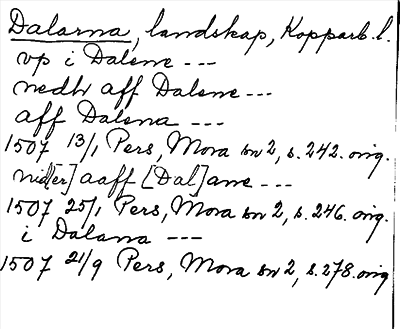 Dalarna, landskap, Kopparb. l.
vp i Dalene ---
nedh aff Dalene ---
aff Dalena ---
1507 13/1 Pers, Mora sn 2, s. 242. orig.
nid[er] aaff [Dal]ane ---
1507 25/1 Pers, Mora sn 2, s. 246. orig.
i Dalana ---
1507 21/9 Pers, Mora sn 2, s. 278. orig